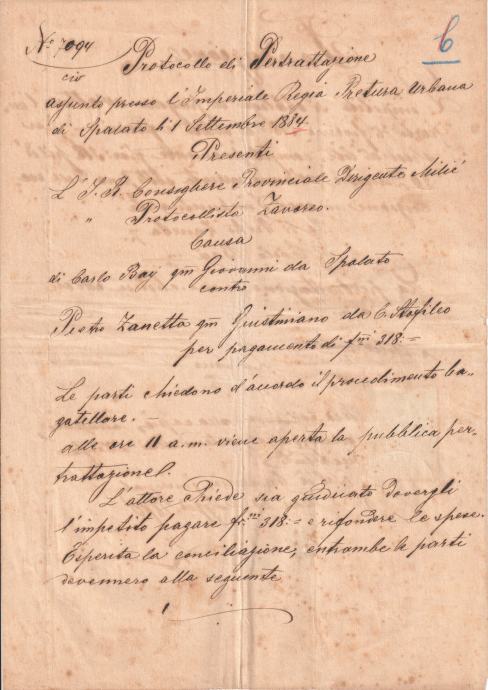 Nº 7094
civ
6
Protocollo di Pertrattazione
assunto presso l'Imperiale Regia Pretura Urbana
di Spalato li 1 Settembre 1884.
Presenti
L'I. R. Consigliere Provinciale Dirigente Milić
" Protocollista Zavoreo.
Causa
di Carlo Bay qm Giovanni da Spalato
contro
Pietro Zanetta qm Giustiniano da C. Stafileo
per pagamento di fni 318:=
Le parti chiedono d'acordo il procedimento ba-
gatellare. —
alle ore 11 a.m. viene aperta la pubblica per-
trattazione.
L'attore chiede sia giudicato dovergli
l'impetito pagare fni 318:= e rifondere le spese.
Esperita la conciliazione, entrambe le parti
devennero alla seguente